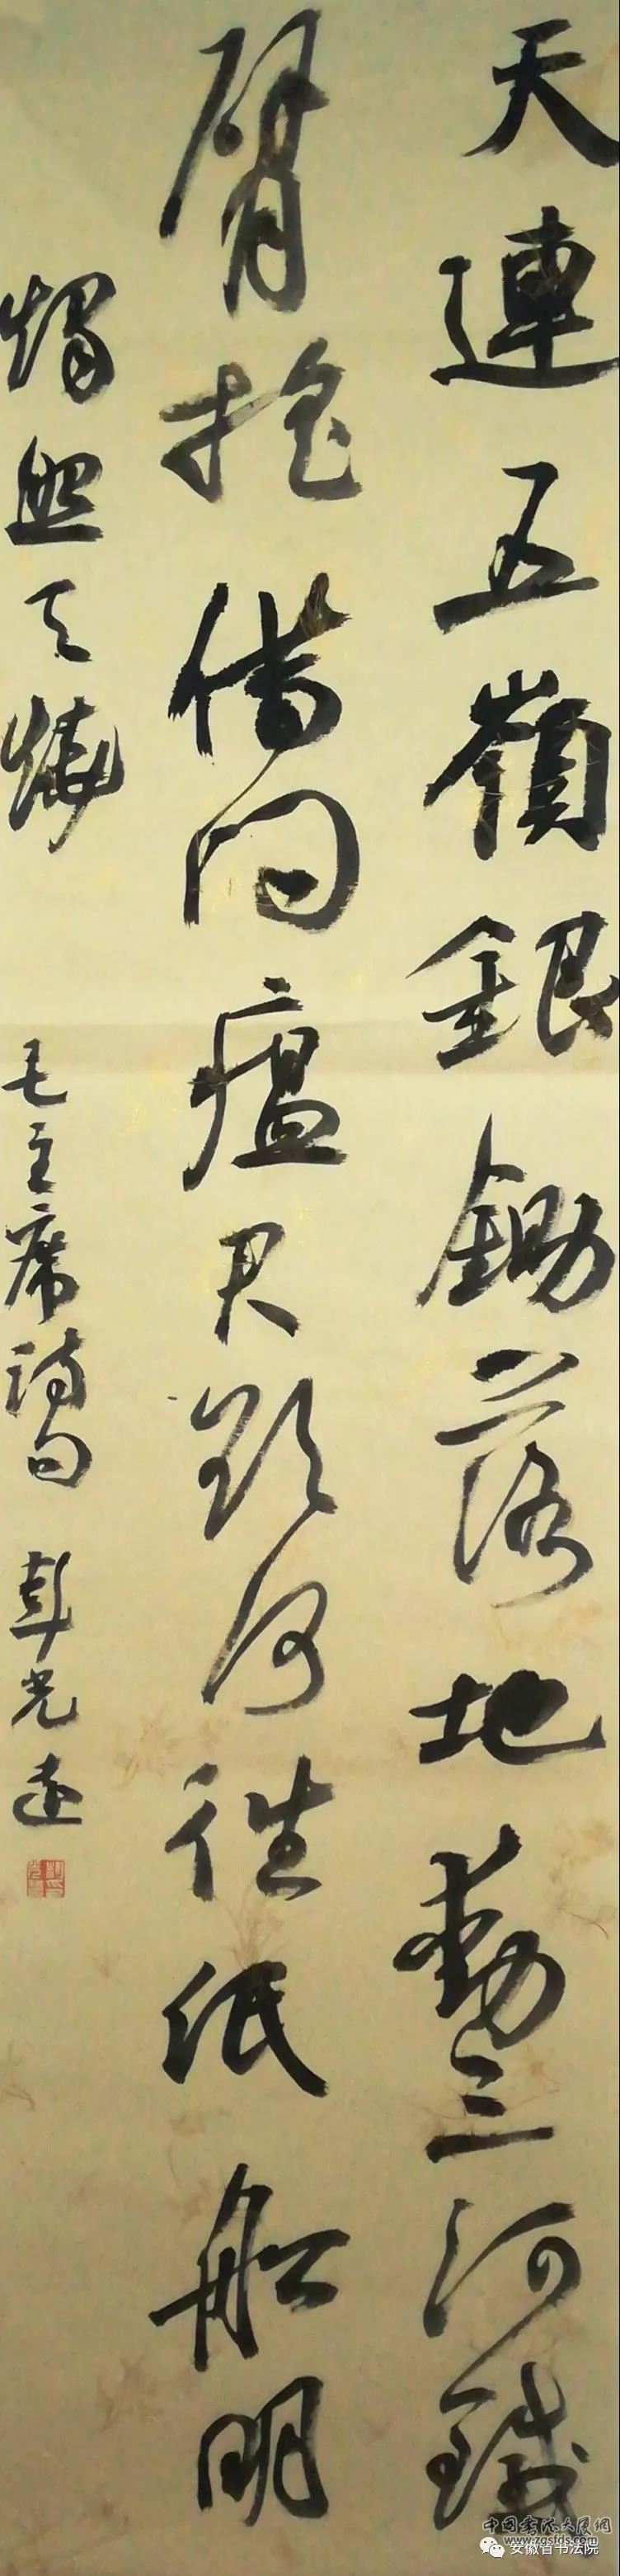 天連五嶺銀鋤落地動三河鐵
臂搖借问瘟君欲何往紙船明
燭照天燒
毛主席詩句 彭光遠
www.zgsfds.com
安徽省书法院